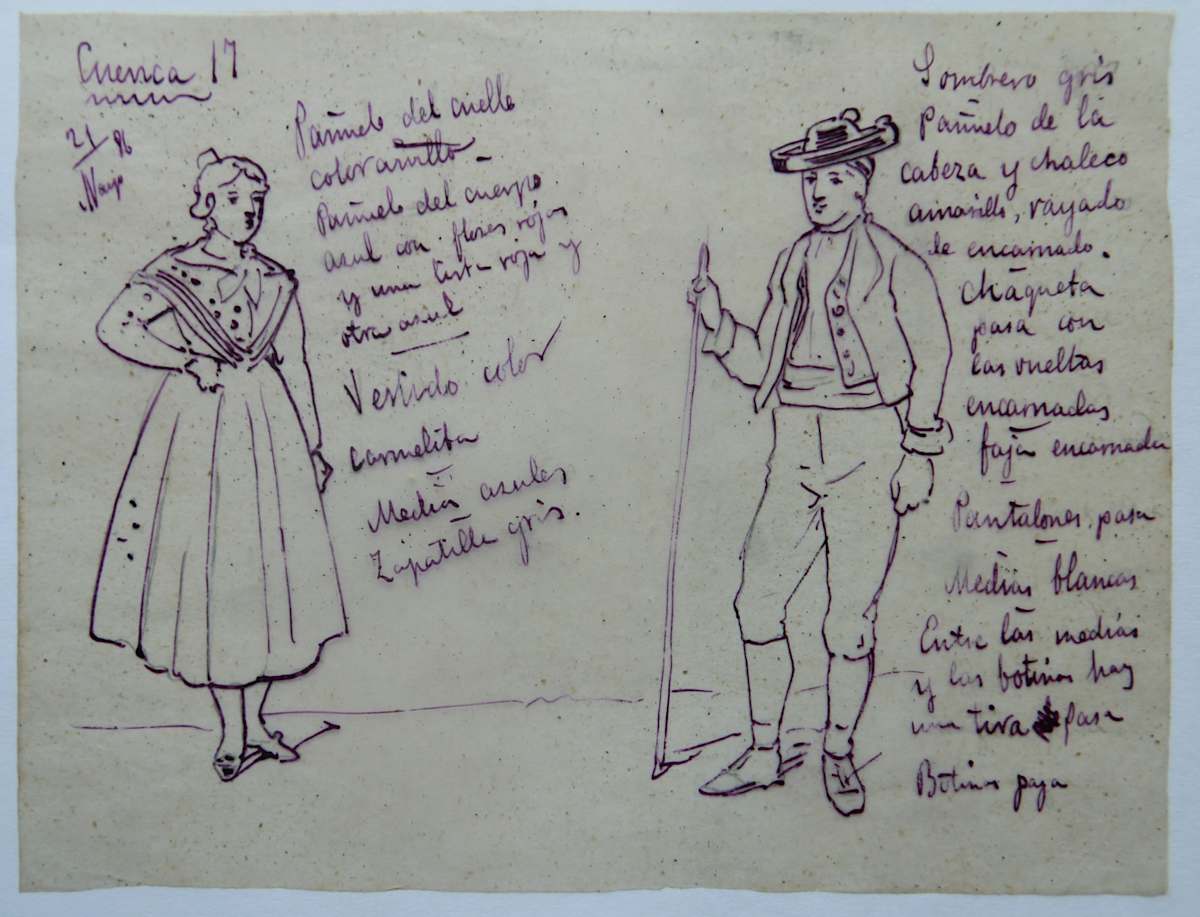 Cuenca 17
21/ 96
Mayo
Pañuelo del cuello
color amillo
Pañuelo del cuerpo
azul con flores rojas
y una lista roja y
otra azul
Vestido color
carmelita
Medias azules
Zapatilla gris.
Sombrero gris
Pañuelo de la
cabeza y chaleco
amarillo, rayado
de encarnado.
Chaqueta
pasa con
las vueltas
encarnadas
faja encarnada
Pantalones pasa
Medias blancas
Entre las medias
y las botinas hay
una tira pasa
Botinas paja